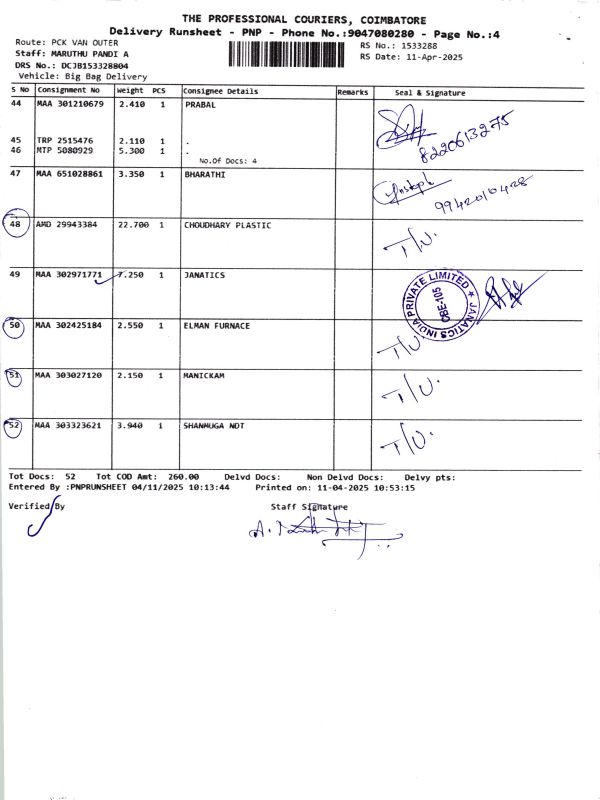 THE PROFESSIONAL COURIERS, COIMBATORE
Delivery Runsheet - PNP - Phone No.:9047080280 - Page No.:4
Route: PCK VAN OUTER
Staff: MARUTHU PANDI A
DRS No.: DCJB153328804
Vehicle: Big Bag Delivery
RS No.: 1533288
RS Date: 11-Apr-2025
S No Consignment No Weight PCS Consignee Details Remarks Seal & Signature
44 MAA 301210679 2.410 1 PRABAL
8220613275
45 TRP 2515476 2.110 1 .
46 MTP 5080929 5.300 1 .
No.Of Docs: 4
47 MAA 651028861 3.350 1 BHARATHI
9942010428
48 AMD 29943384 22.700 1 CHOUDHARY PLASTIC
T/U.
49 MAA 302971771 7.250 1 JANATICS
JANATICS INDIA PRIVATE LIMITED ★
CBE-105
50 MAA 302425184 2.550 1 ELMAN FURNACE
T/U
51 MAA 303027120 2.150 1 MANICKAM
T/U.
52 MAA 303323621 3.940 1 SHANMUGA NDT
T/U.
Tot Docs: 52 Tot COD Amt: 260.00 Delvd Docs: Non Delvd Docs: Delvy pts:
Entered By :PNPRUNSHEET 04/11/2025 10:13:44 Printed on: 11-04-2025 10:53:15
Verified By Staff Signature